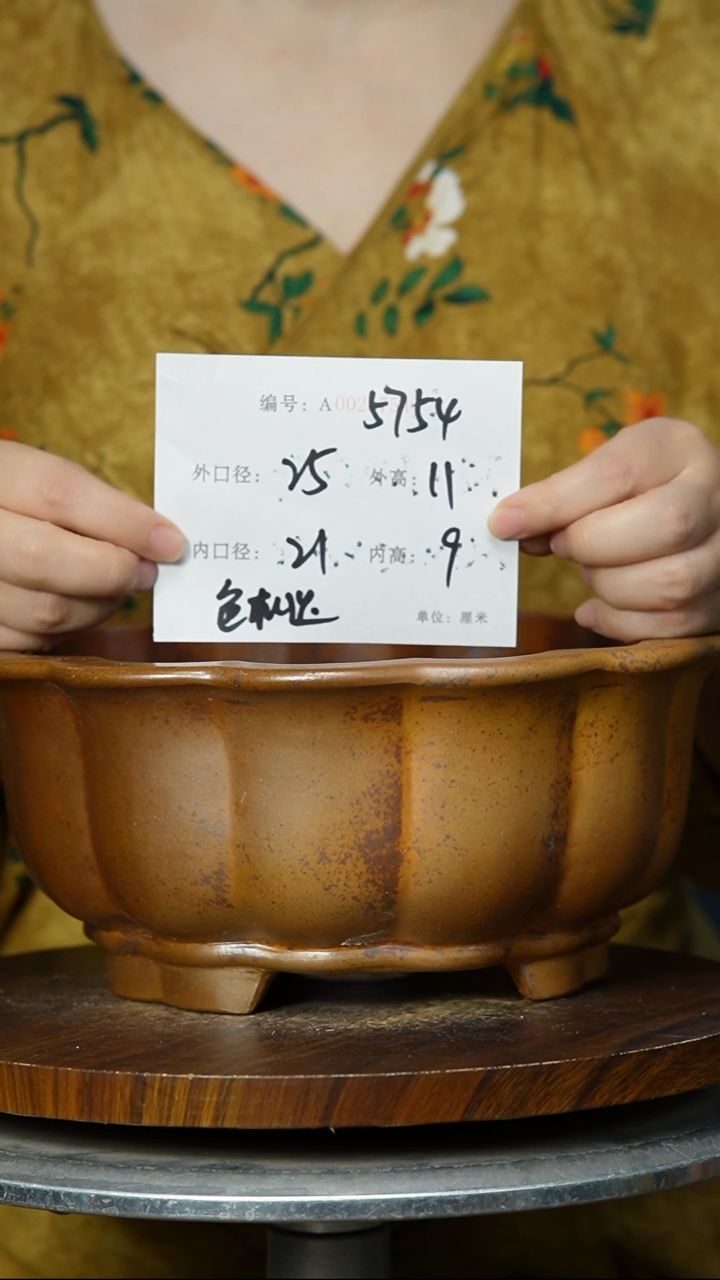 编号: A002 5754
外口径: 25 外高: 11
内口径: 21 内高: 9
单位: 厘米